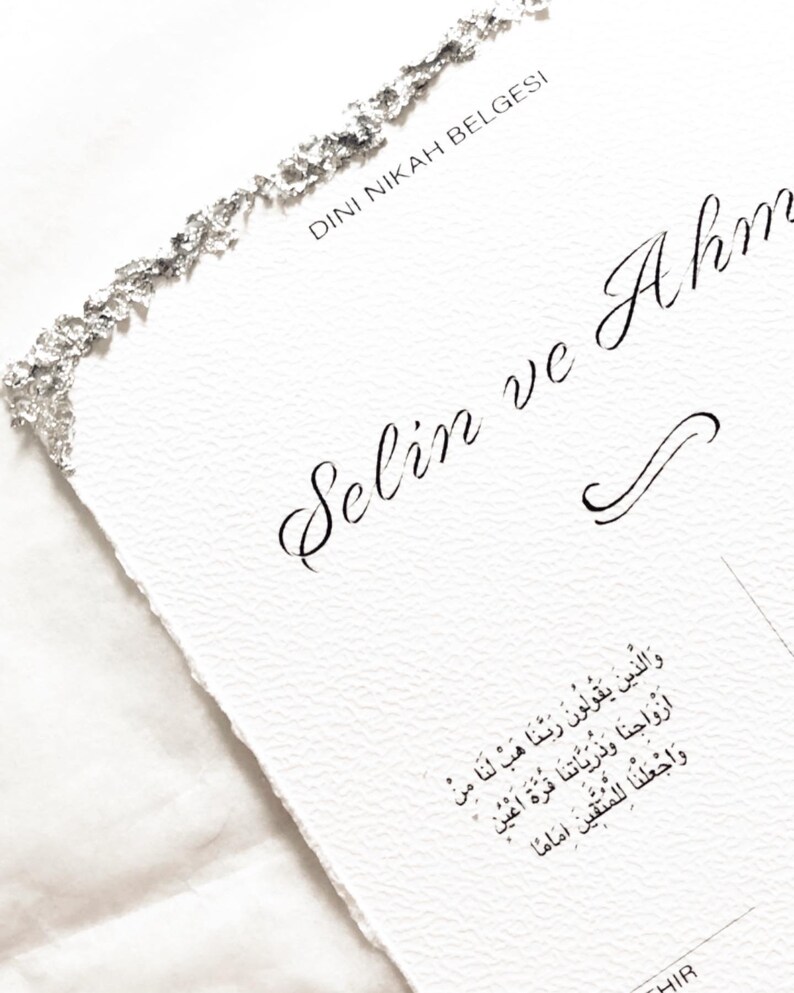 DINI NIKAH BELGESI
Selin ve Ahm
وَالَّذِينَ يَقُولُونَ رَبَّنَا هَبْ لَنَا مِنْ
اَزْوَاجِنَا وَذُرِّيَّاتِنَا قُرَّةَ اَعْيُنٍ
وَاجْعَلْنَا لِلْمُتَّقِينَ اِمَامًا
HIR